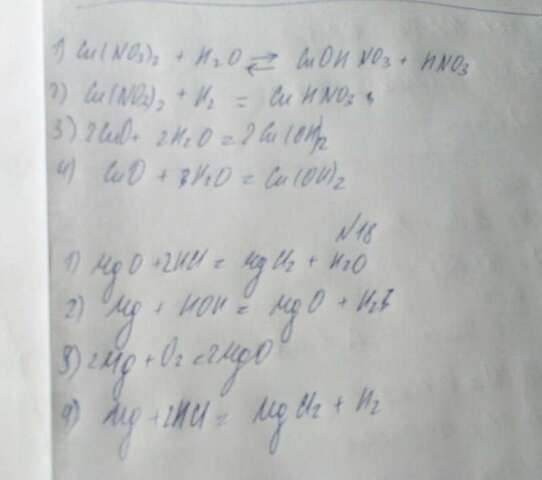 1) Cu(NO3)2 + H2O ⇄ CuOHNO3 + HNO3
2) Cu(NO3)2 + H2 = CuHNO3
3) 2CuO + 2H2O = 2Cu(OH)2
4) CuO + H2O = Cu(OH)2
N18
1) MgO + 2HCl = MgCl2 + H2O
2) Mg + HOH = MgO + H2↑
3) 2Mg + O2 = 2MgO
4) Mg + 2HCl = MgCl2 + H2